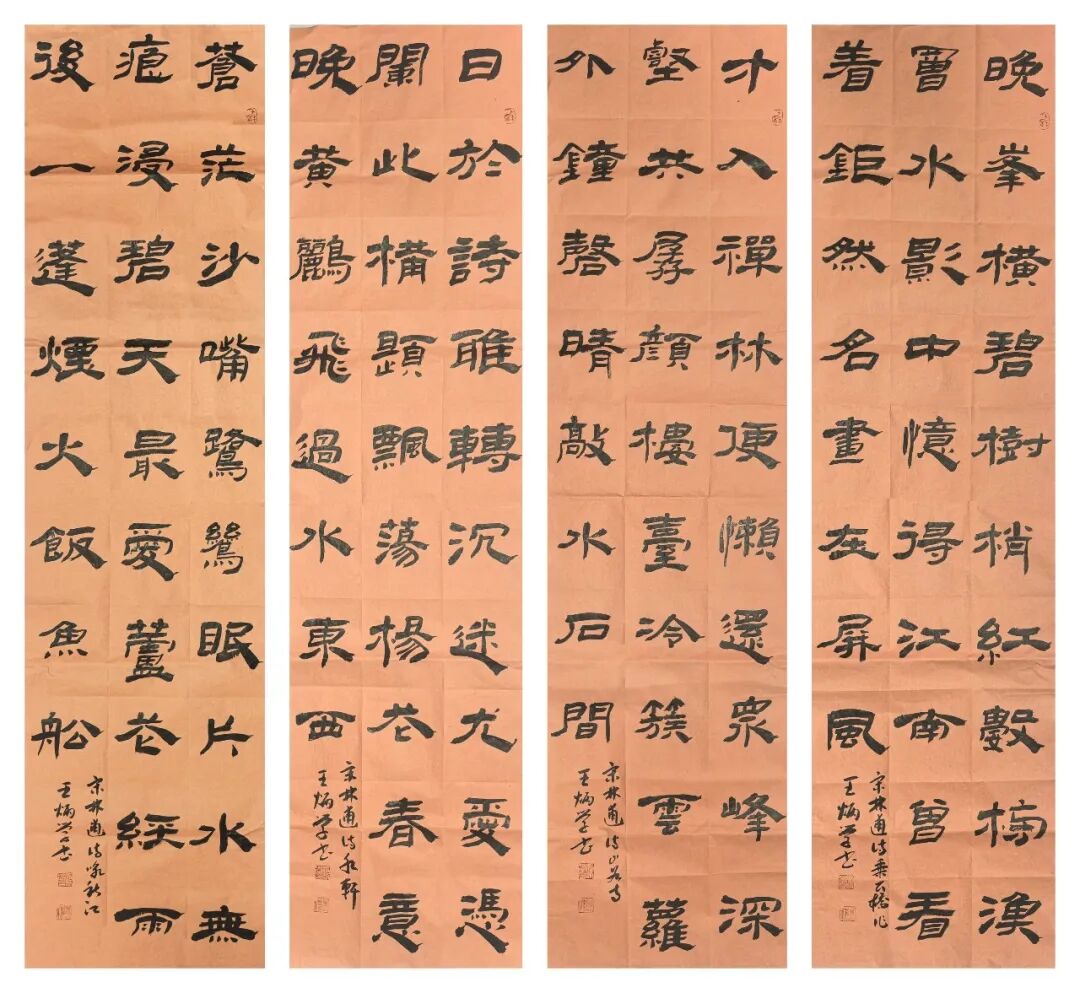 晚峯橫碧樹梢紅數榜漁
罾水影中憶得江南曾看
着鉅然名畫在屏風
宋林逋詩乘公橋作
王炳學書
才入禪林便懶還衆峰深
壑共孱顏樓臺冷簇雲蘿
外鐘磬晴敲水石間
宋林逋詩山谷寺
王炳學書
日於詩雅轉沉迷尤愛憑
闌此構題飄蕩楊花春意
晚黄鸝飛過水東西
宋林逋詩水軒
王炳學書
蒼茫沙嘴鷺鷥眠片水無
痕浸碧天最愛蘆花經雨
後一蓬煙火飯魚船
宋林逋詩詠秋江
王炳學書